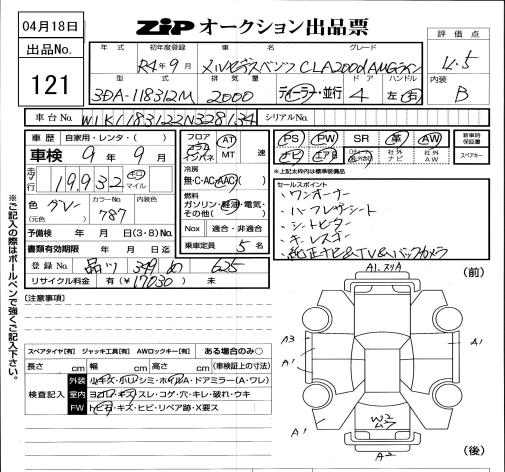 04月18日
ZiP オークション出品票
出品No.
121
評価点
4.5
内装
B
年式 初年度登録 車名 グレード
R4年9月 メルセデスベンツ CLA200d AMGライン
型式 排気量 ドア ハンドル
3DA-118312M 2000 ディーラー・並行 4 左・右
車台No. W1K1183122N328134 シリアルNo.
車歴 自家用・レンタ・( )
車検 9年9月
走行 19,932 km マイル
色 グレー
(元色)
カラーNo. 787
内装色
予備検 年 月 日(3・8)No.
書類有効期限 年 月 日迄
登録No. 品川 349 め 625
リサイクル料金 有(¥17030) 未
フロア コラム インパネ
AT
MT 速
冷房
無・C・AC・AAC( )
燃料
ガソリン・軽油・電気・
その他( )
Nox 適合・非適合
乗車定員 5名
PS PW SR 革 AW
ナビ エアB 社外ナビ 社外AW
新車時保証書
スペアキー
※上記太枠内は標準装備品
セールスポイント
・ワンオーナー
・ハーフレザーシート
・シートヒーター
・キーレスゴー
・純正ナビ&TV&バックカメラ
※ご記入の際はボールペンで強くご記入下さい。
[注意事項]
スペアタイヤ[有] ジャッキ工具[有] AWロックキー[有] ある場合のみ○
長さ cm 幅 cm 高さ cm (車検証上の寸法)
検査記入
外装 小キズ・小U・シミ・ホイルA・ドアミラー(A・ワレ)
室内 ヨゴレ・キズ・スレ・コゲ・穴・キレ・破れ・ウキ
FW トビ石・キズ・ヒビ・リペア跡・X要ス
(前)
A1,スリA
A3
A1
A1
A1
W2
A2
(後)